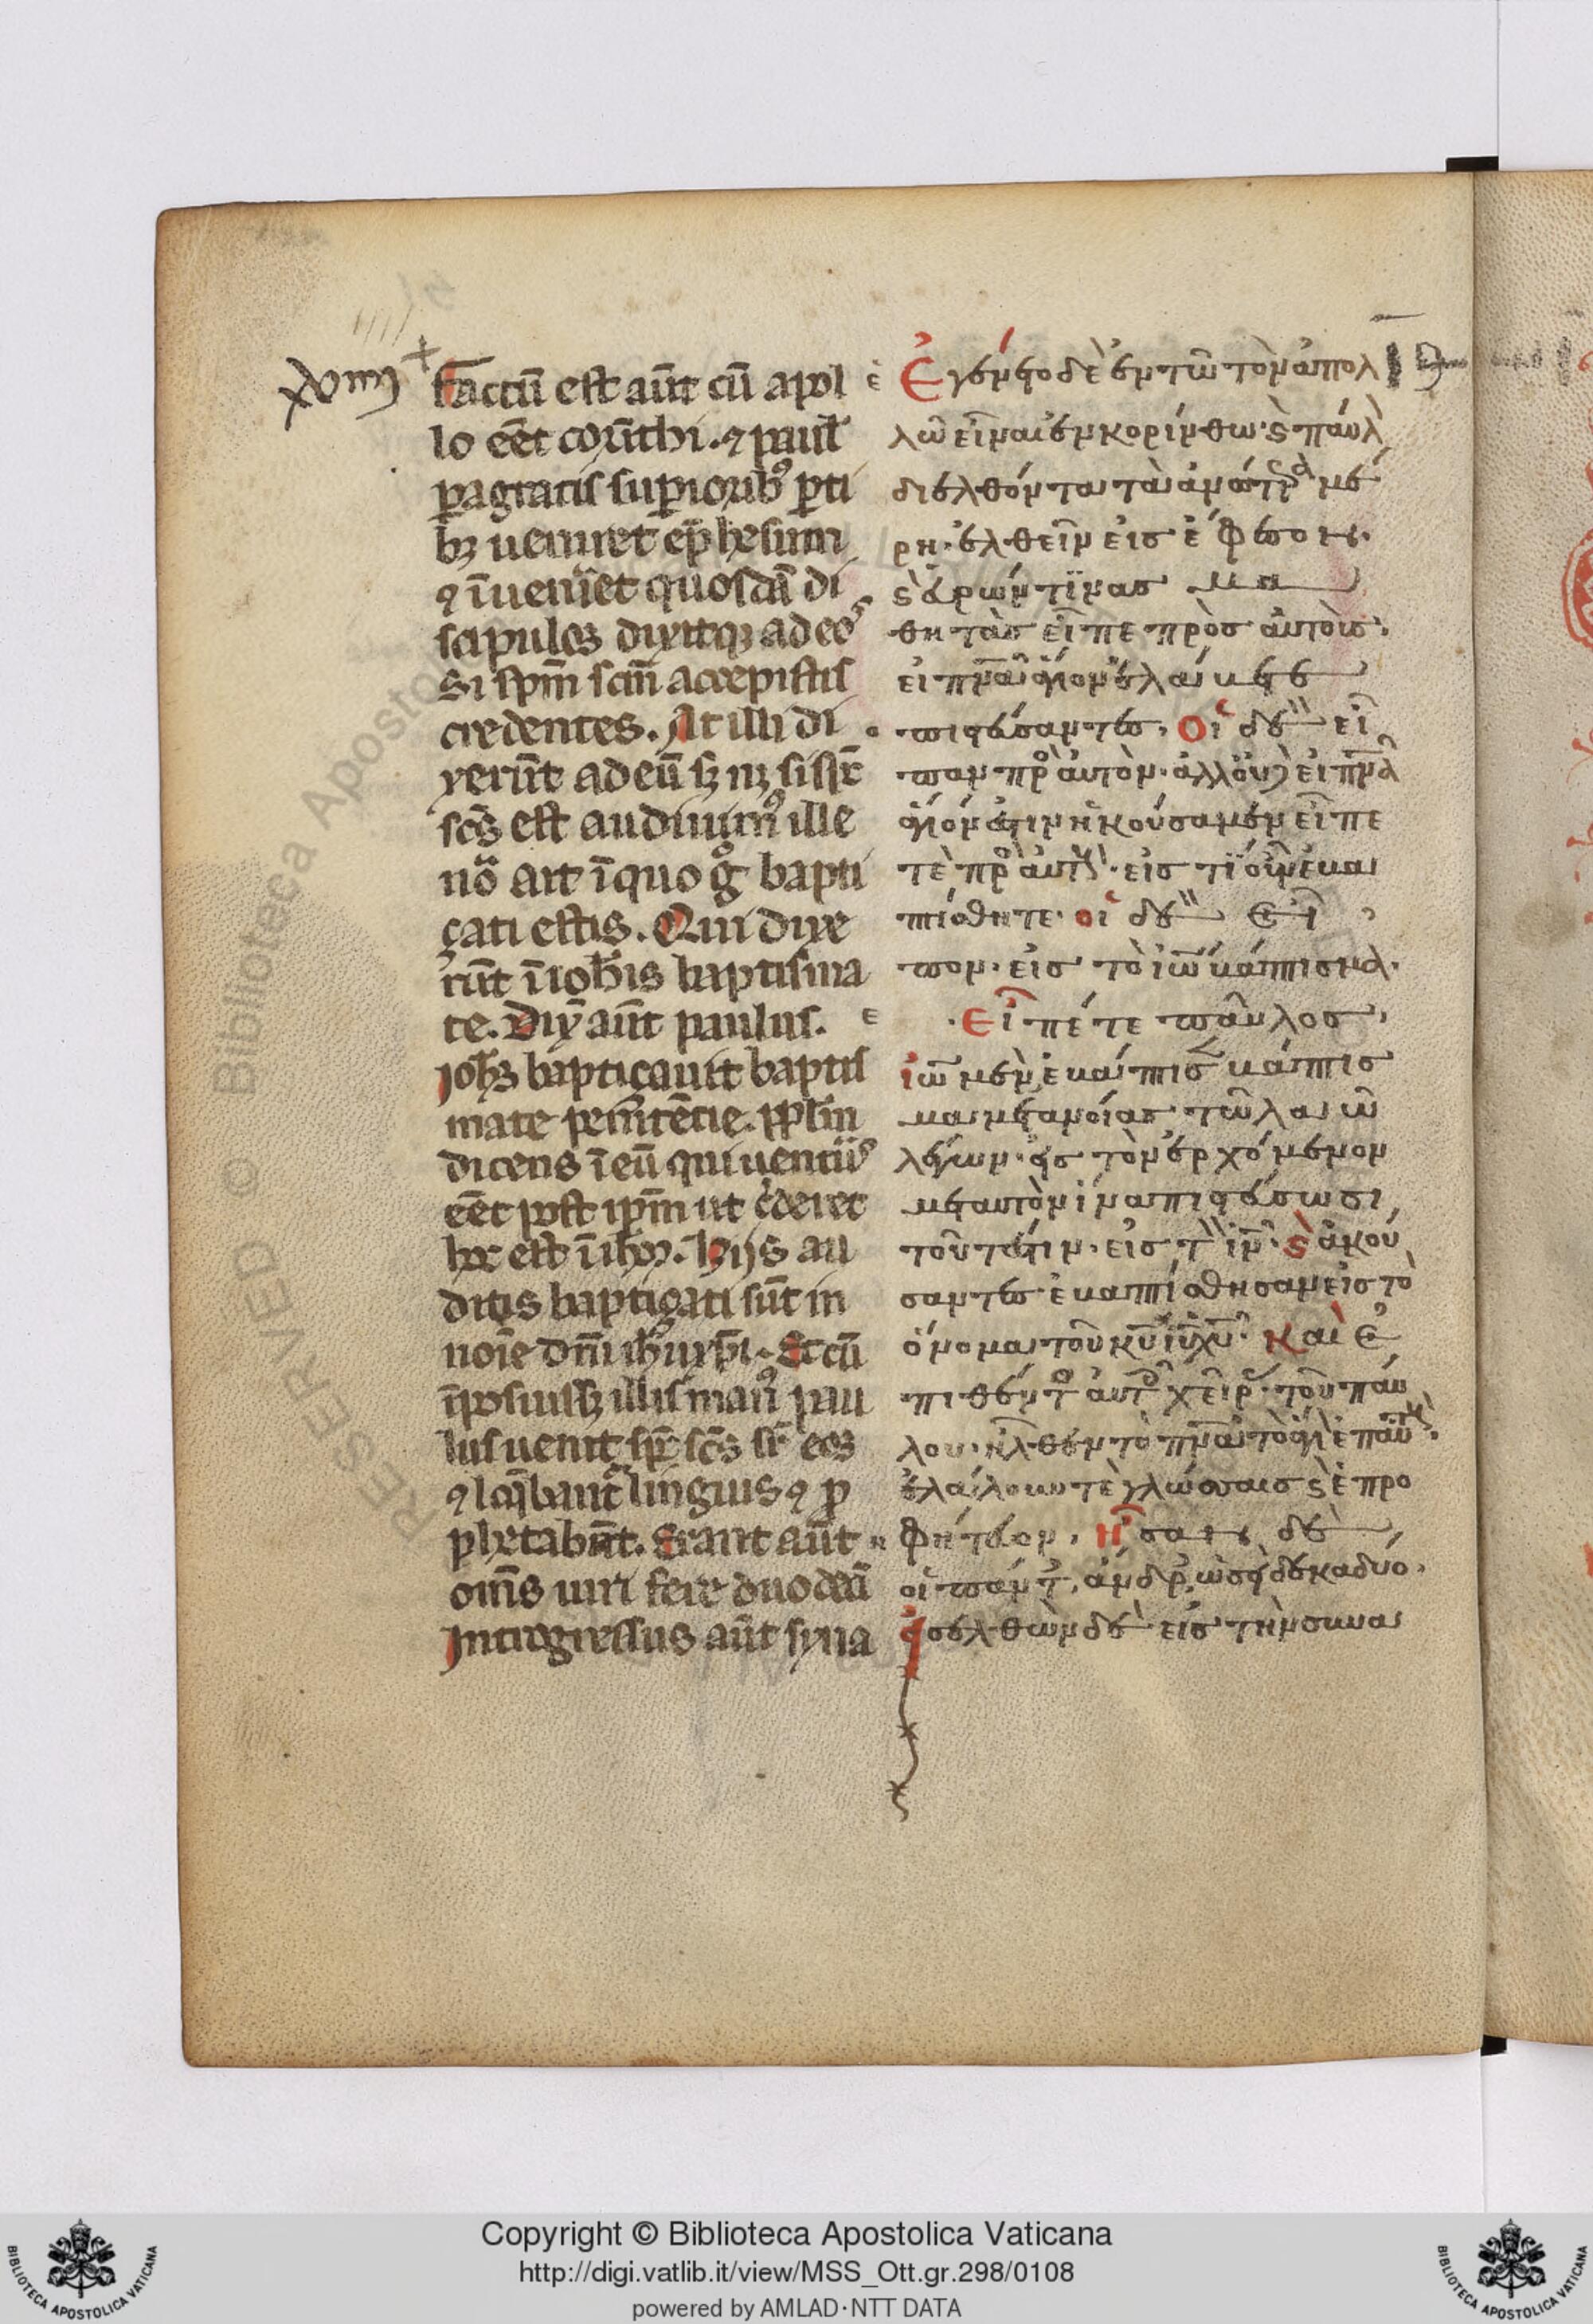 xviiij
factū est aūt cū apol
lo eēt corīthi. ⁊ paul̄
ꝑagratis supiorib⁹ ꝑti
bꝫ ueniret ephesum
⁊ īueniret quosdā di
scipulos dixitqꝫ ad eos
Si spm̄ scm̄ accepistis
credentes. At illi di
xerūt ad eū sꝫ nꝫ si sp̄c
sc̄s est audiuim⁹ ille
uō ait ī quo g̊ bapti
çati estis. Qui dixe
rūt ī ioh̄is baptisma
te. Dix̄ aūt paulus.
joh̄s baptiçauit baptis
mate penitētie. pplm̄
dicens ī eū qui uentur⁹
eēt post ip̄m ut c̄deret
hoc est ī ih̄m. hijs au
ditis baptiçati sūt in
noīe dnī ih̄u xp̄i. Et cū
īposuissꝫ illis man⁹ pau
lus uenit sp̄c sc̄s sr̄ eos
⁊ loq̄bant̄ linguis ⁊ ꝓ
phetabāt. Erant aūt
om̄s uiri fere duodeci
Introgressus aūt syna
Ἐγένετο δὲ ἐν τῶ τὸν ἀπολ
λῶ εἶναι ἐν κορίνθω· ϛ παύλ
διελθόντα τὰ ἀνωτρ̂ μέ
ρη· ἐλθεῖν εἰς ἔφεσον·
ϛ εὑρών τϊνας μα
θητὰς εἶπε πρὸς αὐτοὺς·
εἰ πν̄α ἅγιον ἐλάβετε
πιστεύσαντες, οἱ δὲ εἶ
παν πρὸ αὐτὸν· ἀλλ οὐδ εἰ πν̄α
ἅγιόν ἐστιν ἠκούσαμεν εἶπε
τὲ πρὸ αὐτούς· εἰς τί οὖν ἐβα
πτίσθητε· οἱ δὲ εἶ
πον· εἰς τὸ ἰω̄ βάπτισμα·
Εἶπέ τε παῦλος,
ἰω̄ μὲν ἐβάπτισ βάπτισ
μα μετανοίας τῶ λαῶ
λέγων· εἰς τὸν ἐρχόμενον
μετ αυτὸν ἵνα πιστεύσωσι,
τοῦτέστιν· εἰς τ ἰν̄· ϛ ἀκού
σαντες ἐβαπτίσθησαν εἰς τὸ
ὄνομα τοῦ κῡ ῑῡ χῡ· Καὶ ἐ
πιθέντ αὐτ χεῖρ· τοῦ παύ
λου· ἦλθεν τὸ πν̄α τὸ ἅγι ἐπ αὐτους·
ἐλάλουν τὲ γλώσσαις ϛ ἐπρο
φήτευον, ἦσαν δὲ
οἱ πάντ, ἄνδρ, ὡσεὶ δεκαδύο·
εἰσελθὼν δὲ εἰς τὴν συνα
RESERVED © Biblioteca Apostolica
Copyright © Biblioteca Apostolica Vaticana
http://digi.vatlib.it/view/MSS_Ott.gr.298/0108
powered by AMLAD·NTT DATA
BIBLIOTECA APOSTOLICA VATICANA
BIBLIOTECA APOSTOLICA VATICANA